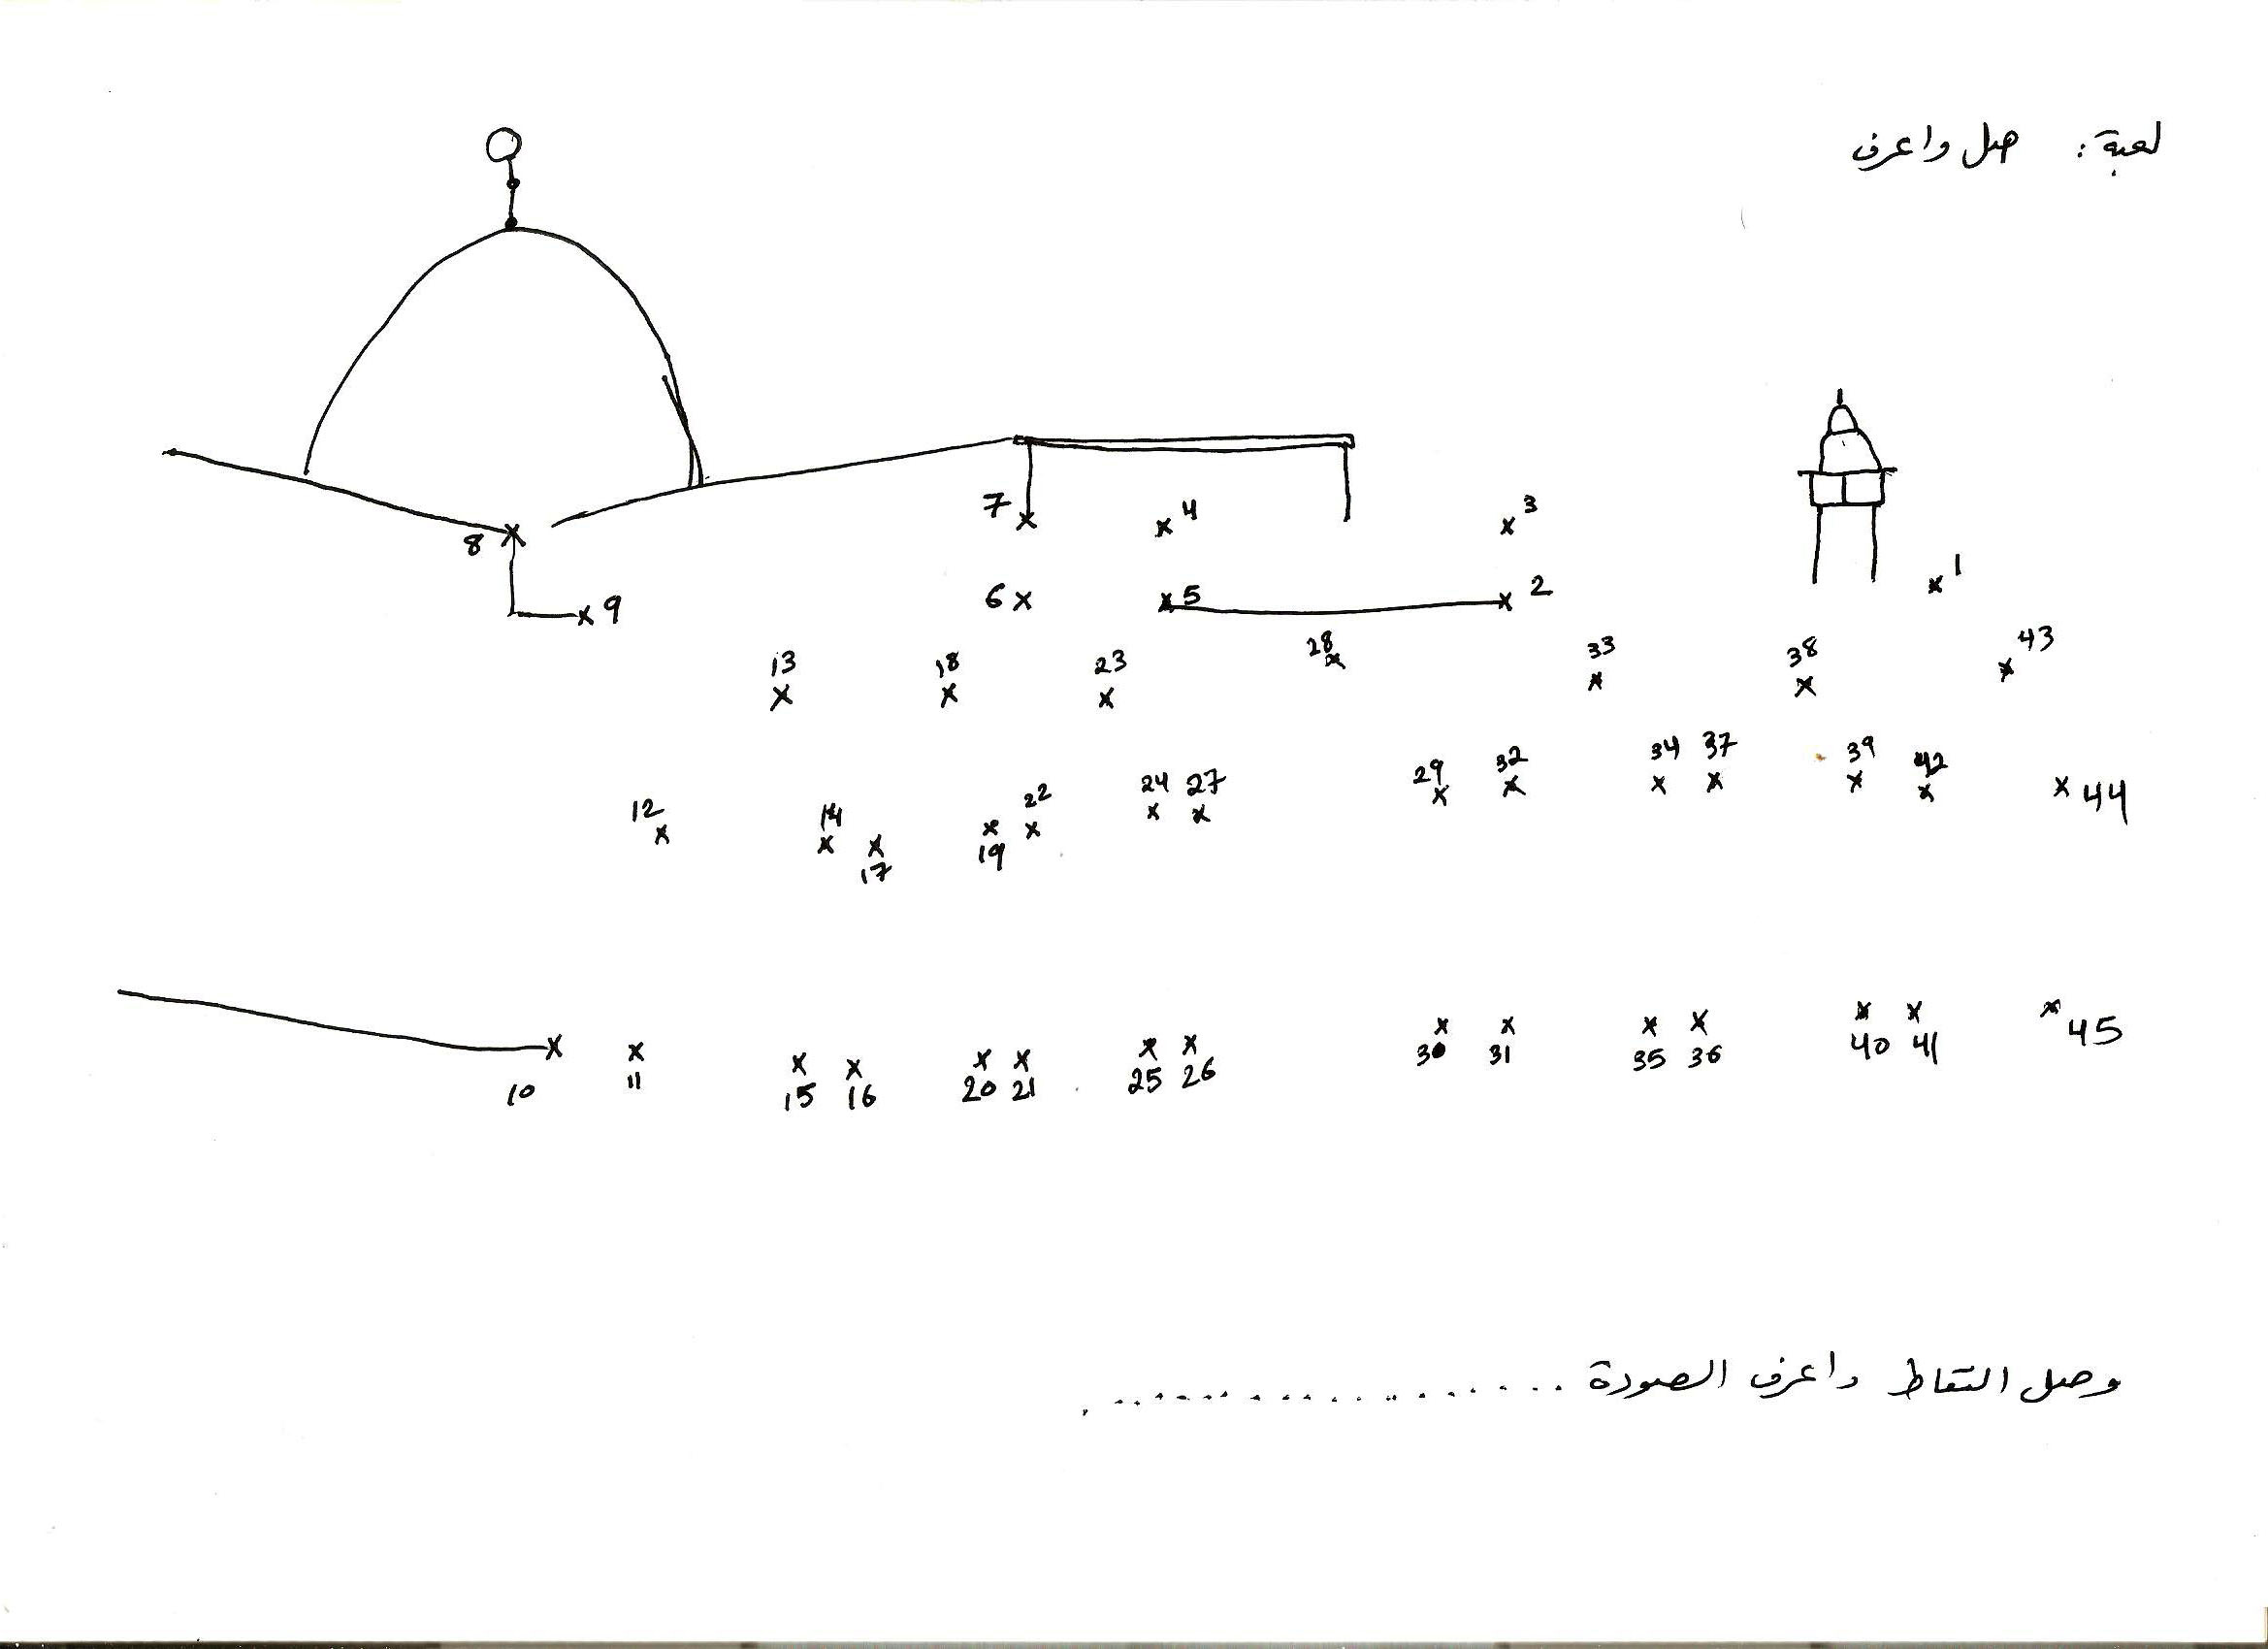 لعبة : صل واعرف
7 4 3
8 9 6 5 2 1
13 18 23 28 33 38 43
12 14 17 19 22 24 27 29 32 34 37 39 42 44
10 11 15 16 20 21 25 26 30 31 35 36 40 41 45
وصل النقاط واعرف الصورة ....................